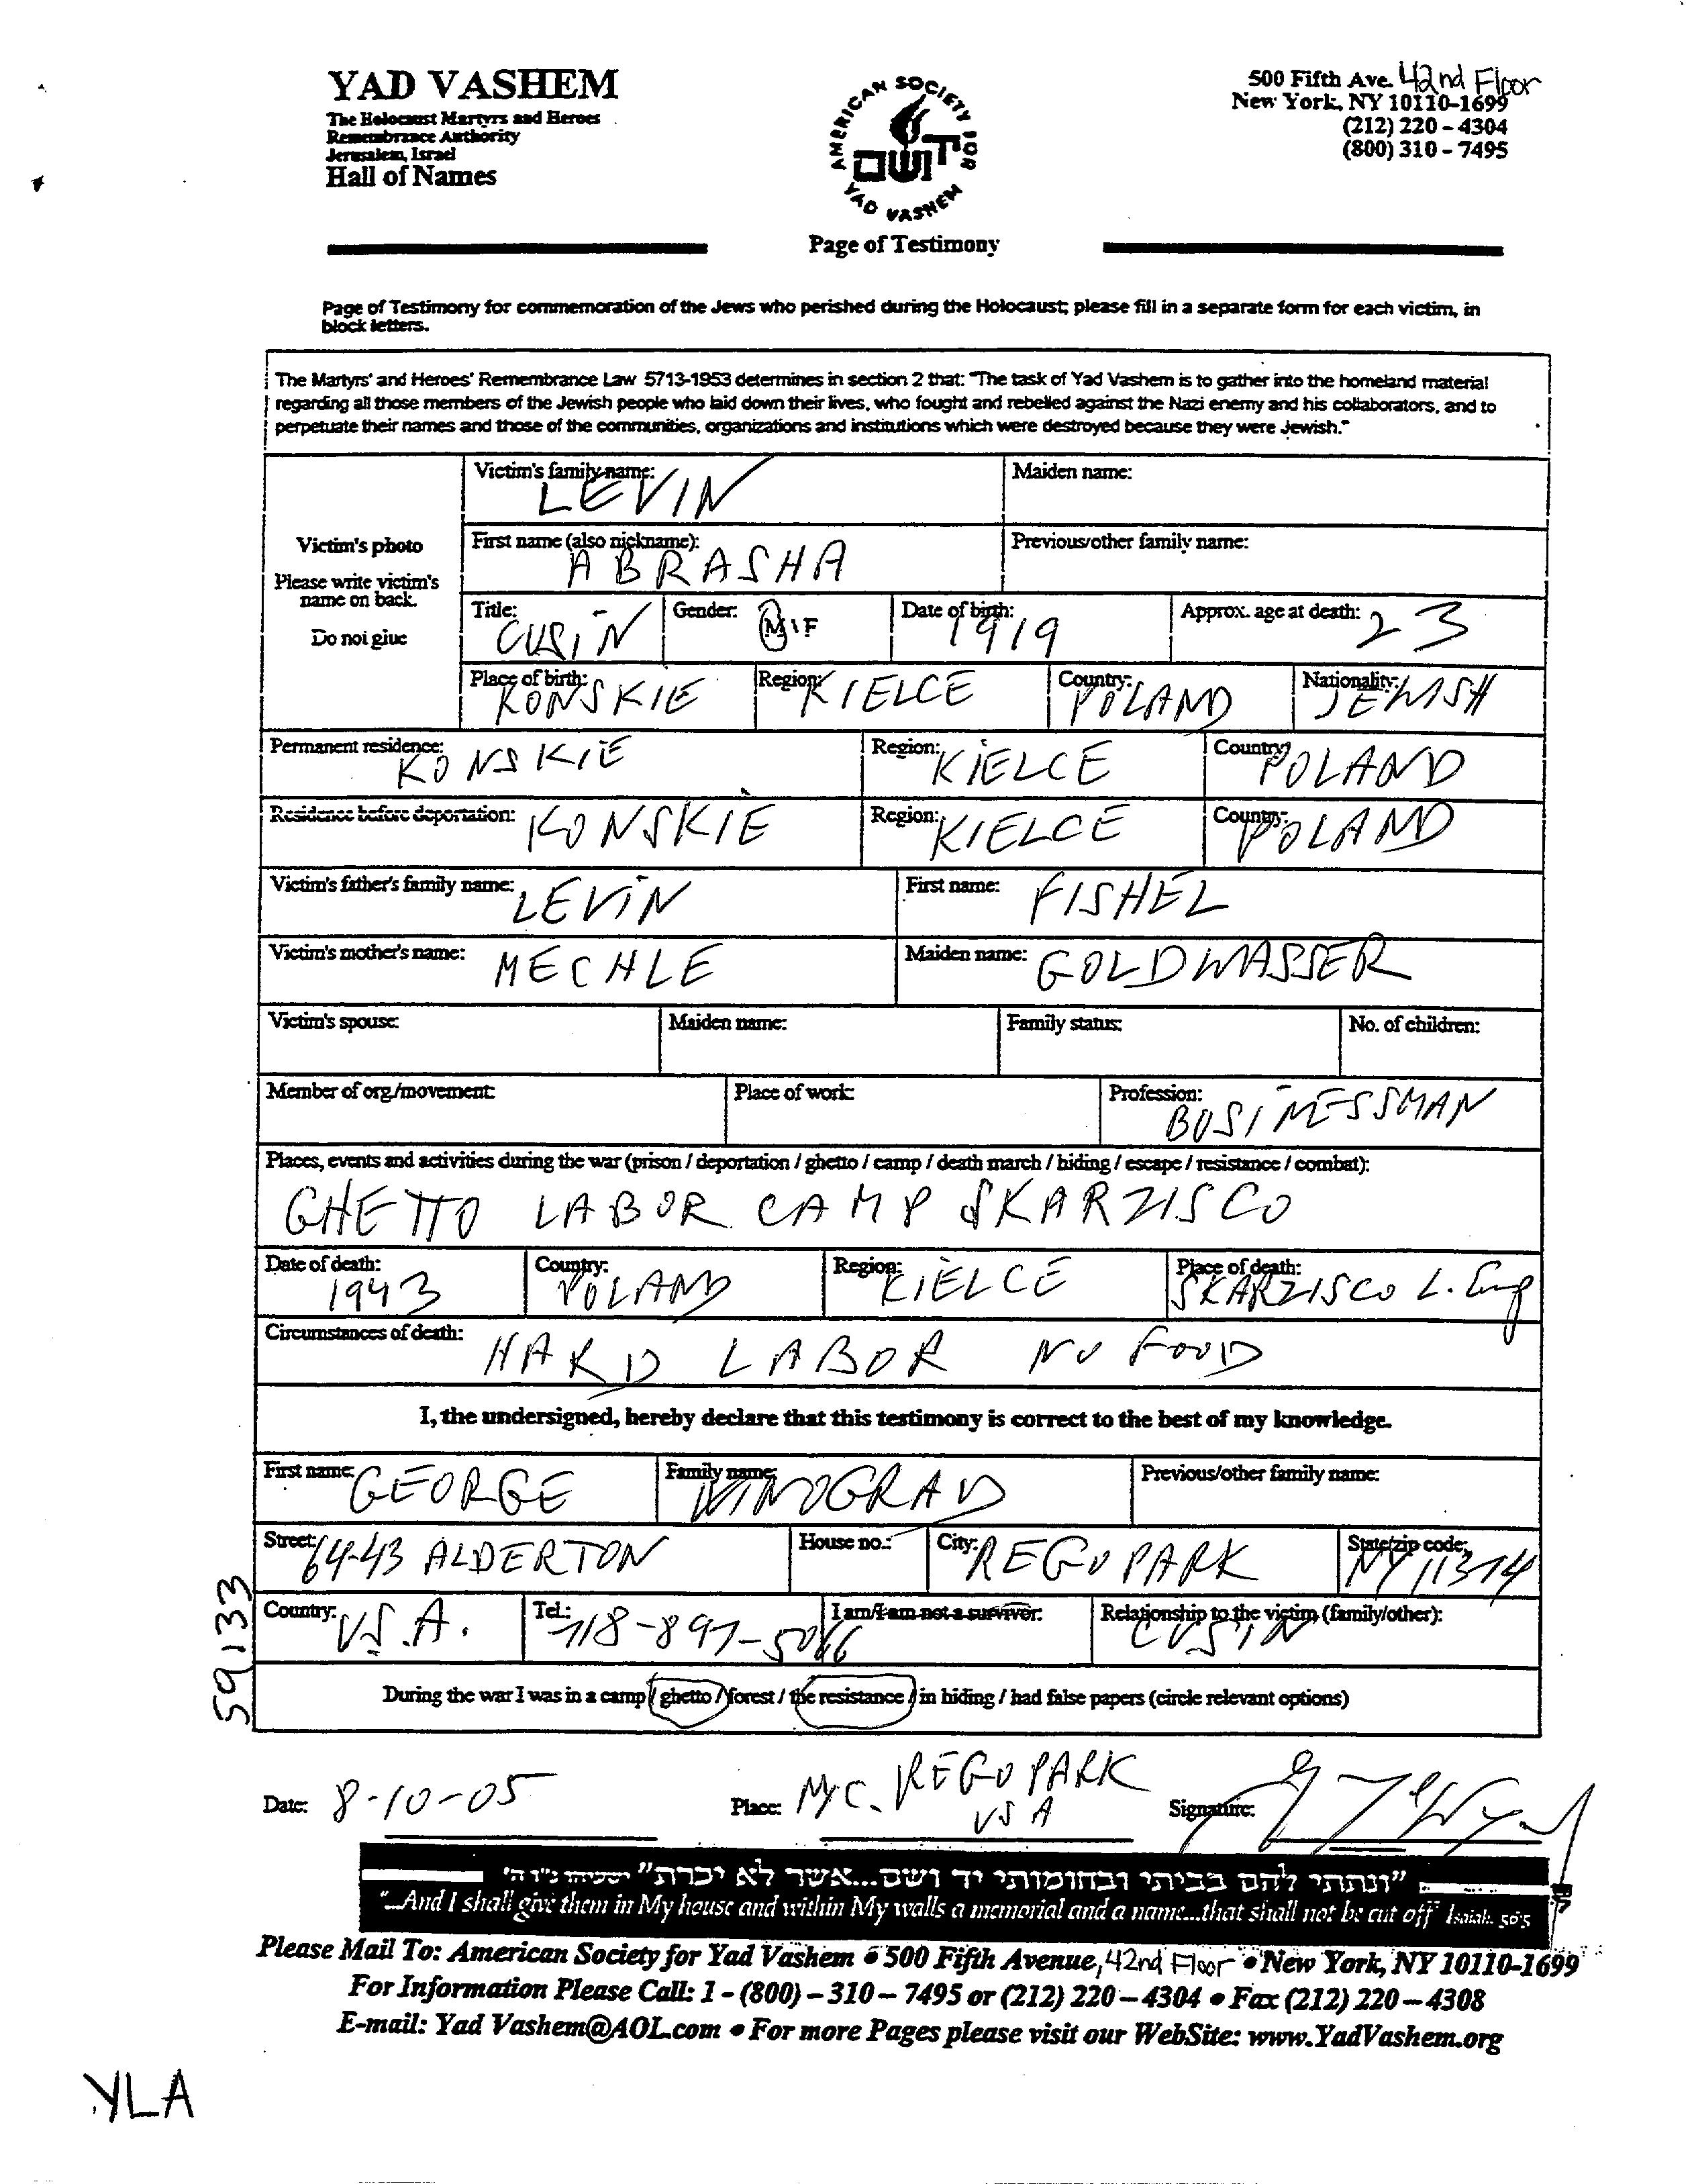 YAD VASHEM
The Holocaust Martyrs and Heroes
Remembrance Authority
Jerusalem, Israel
Hall of Names
AMERICAN SOCIETY FOR
יד ושם
YAD VASHEM
Page of Testimony
500 Fifth Ave. 42nd Floor
New York, NY 10110-1699
(212) 220 - 4304
(800) 310 - 7495
Page of Testimony for commemoration of the Jews who perished during the Holocaust; please fill in a separate form for each victim, in
block letters.
The Martyrs' and Heroes' Remembrance Law 5713-1953 determines in section 2 that: "The task of Yad Vashem is to gather into the homeland material
regarding all those members of the Jewish people who laid down their lives, who fought and rebelled against the Nazi enemy and his collaborators, and to
perpetuate their names and those of the communities, organizations and institutions which were destroyed because they were Jewish."
Victim's photo
Please write victim's
name on back.
Do not glue
Victim's family name: LEVIN
Maiden name:
First name (also nickname): ABRASHA
Previous/other family name:
Title: CUSIN
Gender: M / F
Date of birth: 1919
Approx. age at death: 23
Place of birth: KONSKIE
Region: KIELCE
Country: POLAND
Nationality: JEWISH
Permanent residence: KONSKIE
Region: KIELCE
Country: POLAND
Residence before deportation: KONSKIE
Region: KIELCE
Country: POLAND
Victim's father's family name: LEVIN
First name: FISHEL
Victim's mother's name: MECHLE
Maiden name: GOLDWASSER
Victim's spouse:
Maiden name:
Family status:
No. of children:
Member of org/movement:
Place of work:
Profession: BUSINESSMAN
Places, events and activities during the war (prison / deportation / ghetto / camp / death march / hiding / escape / resistance / combat):
GHETTO LABOR CAMP SKARZISCO
Date of death: 1943
Country: POLAND
Region: KIELCE
Place of death: SKARZISCO L. Cmp
Circumstances of death: HARD LABOR NO FOOD
I, the undersigned, hereby declare that this testimony is correct to the best of my knowledge.
First name: GEORGE
Family name: WINOGRAD
Previous/other family name:
Street: 64-43 ALDERTON
House no.:
City: REGO PARK
State/zip code: NY 11374
Country: U.S.A.
Tel.: 718-897-5066
I am/I am not a survivor:
Relationship to the victim (family/other): CUSIN
During the war I was in a camp / ghetto / forest / the resistance / in hiding / had false papers (circle relevant options)
59133
Date: 8-10-05
Place: NYC. REGO PARK
USA
Signature:
"ונתתי להם בביתי ובחומותי יד ושם...אשר לא יכרת" ישעיהו נ"ו ה'
"...And I shall give them in My house and within My walls a memorial and a name...that shall not be cut off" Isaiah 56:5
Please Mail To: American Society for Yad Vashem • 500 Fifth Avenue, 42nd Floor • New York, NY 10110-1699
For Information Please Call: 1 - (800) - 310 - 7495 or (212) 220 - 4304 • Fax (212) 220 - 4308
E-mail: Yad Vashem@AOL.com • For more Pages please visit our WebSite: www.YadVashem.org
YLA